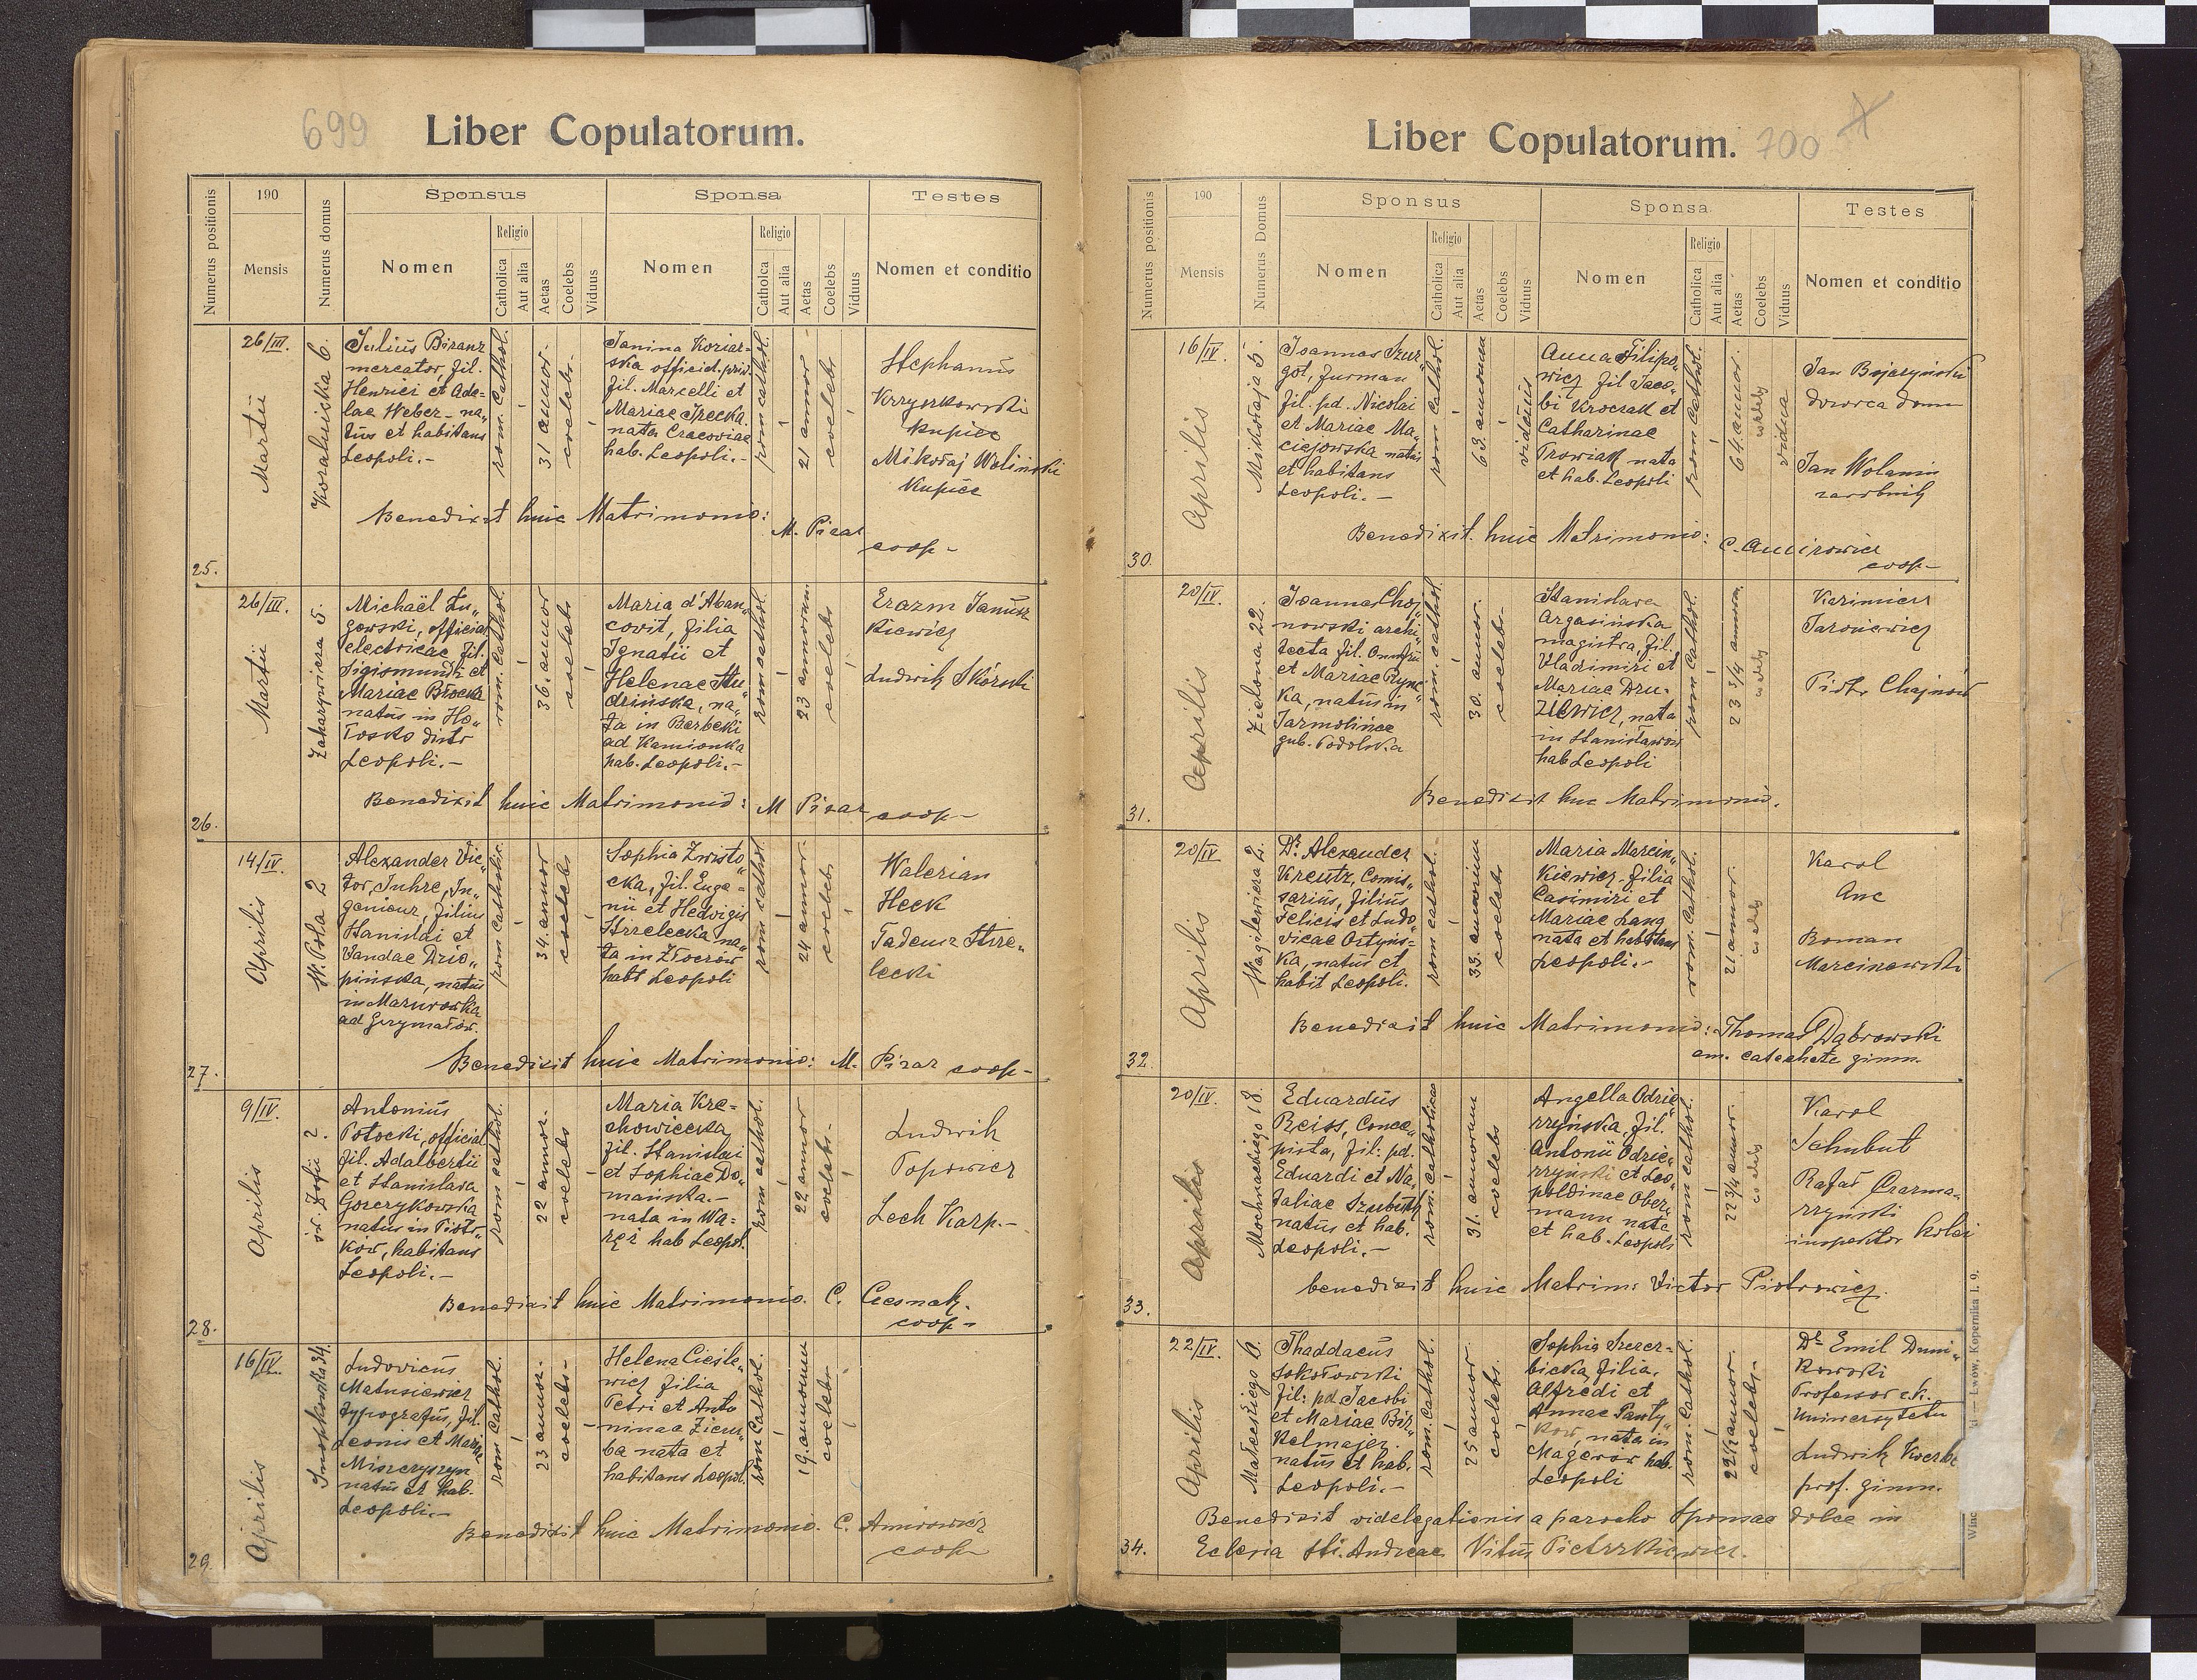 699
Liber Copulatorum.
Numerus positionis
190
Mensis
Numerus domus
Sponsus
Nomen
Religio
Catholica
Aut alia
Aetas
Coelebs
Viduus
Sponsa
Nomen
Religio
Catholca
Aut alia
Aetas
Coelebs
Viduus
Testes
Nomen et conditio
25.
26/III.
Martii
6.
Julius
mercator, fil.
Henrici et Ade=
lae Weber - na=
tus et habitans
Leopoli.-
rom. Cathol.
31 annor.
coelebs
Janina Koziar=
ska official. priv.
fil. Marcelli et
Mariae
nata Cracoviae
hab. Leopoli.-
rom cathol.
21 annor
coelebs
Stephanus
Krzyszkowski
kupiec
Mikołaj Woliński
Kupiec
Benedixit huic Matrimonio:
M. Pizar
coop-
26.
26/III.
Martii
5.
Michaël Zu„
gowski, official
electricae fil.
Sigismundi et
Mariae
natus in Ho„
łosko distr
Leopoli.-
rom. Cathol.
36. annor
coelebs
Maria d'Aban„
covit, filia
Ignatii et
Helenae Stu„
dzińska, na„
ta in Berbeki
ad Kamionka
hab. Leopoli.-
rom cathol.
23 annorum
coelebs
Erazm Janusz
kiewicz
Ludwik Skórski
Benedixit huic Matrimonio: M Pizar coop-
27.
14/IV.
Aprilis
W. Pola 2
Alexander Vic„
tor, Juhre, In„
genieur, filius
Stanislai et
Vandae Drio„
pińska, natus
in Mazurowka
ad Grzymałów.
rom Catholic
34. annor
coelebs
Sophia Zwisto„
cka, fil. Euge=
nii et Hedvigis
Strzelecka na„
ta in Złoczów
habt Leopoli
rom cathol.
24 annor.
coelebs
Walerian
Heck
Tadeusz Strze„
lecki
Benedixit huic Matrimonio: M. Pizar coop-
28.
9/IV.
Aprilis
św. Zofii 2.
Antonius
Potocki, official
fil. Adalberti
et Stanislava
Gorczykowska
natus in Piotr„
ków, habitans
Leopoli.-
rom cathol.
22 annor.
coelebs
Maria Kre=
chowiecka
fil. Stanislai
et Sophiae Do„
mańska.-
nata in Wa=
ręż hab Leopol.
rom cathol.
22 annor
coelebs-
Ludwik
Popowicz
Lech Karp.-
Benedixit huic Matrimonio. C. Ciesnak.
coop-
29.
16/IV.
Aprilis
Snopkowska 34.
Ludovicus
Matusiewicz
typografus, fil.
Leonis et Mariae
natus et hab.
Leopoli.-
rom Cathol.
23 annor.
coelebs-
Helena Cieśle„
wicz filia
Petri et Anto
ninae Ziem„
ba nata et
habitans Leopol.
rom Cathol.
19. annorum
coelebs
Benedixit huic Matrimonio. C. Amirowicz
coop-
Liber Copulatorum. 700
Numerus positionis
190
Mensis
Numerus Domus
Sponsus
Nomen
Religio
Catholica
Aut alia
Aetas
Coelebs
Viduus
Sponsa
Nomen
Religio
Catholica
Aut alia
Aetas
Coelebs
Viduus
Testes
Nomen et conditio
30.
16/IV.
Aprilis
Mikołaja 5.
Joannes Szur„
got, furman
fil. pd. Nicolai
et Mariae Ma„
ciejowska natus
et habitans
Leopoli.-
rom Cathol.
63. annorum
viduus
Anna Filipo„
wicz fil Jaco„
bi Kroczak et
Catharinae
Prowiak nata
et hab. Leopoli
rom Cathol.
64. annor.
vidua
Jan Bojaryński
dozorca domu
Jan Wolanin
zarobnik
Benedixit huic Matrimonio: C. Amirowicz
coop-
31.
20/IV.
Aprilis
Zielona 22.
Joannes Choj„
nowski archi„
tecta fil. Onufrii
et Mariae Rync„
ka, natus in
Jarmolińce
gub. Podolska
rom. cathol
30. annor.
coelebs-
Stanislava
Argasińska
magistra, fil.
Vladimiri et
Mariae Dru=
ziewicz, nata
in Stanisławów
hab Leopoli
rom Cathol.
23 3/4 annorum
coelebs
Kazimierz
Jaroniewicz
Piotr Chojnow
Benedixit huic Matrimonio.
32.
20/IV
Aprilis
Wagilewicza 2.
Dr. Alexander
Kreutz, Comis„
sarius, filius
Felicis et Ludo„
vicae Ostyńs=
ka, natus et
habit Leopoli.
rom cathol.
33. annorum
coelebs
Maria Marcin„
kiewicz, filia
Casimiri et
Mariae Lang
nata et habitans
Leopoli.-
rom. Cathol.
21 annor.
coelebs
Karol
Anc
Roman
Marcinowski
Benedixit huic Matrimonio: Thomas Dąbrowski
em. catechete gimn.
33.
20/IV.
Aprilis
Mochnackiego 18.
Eduardus
Reiss, Conce„
pista, fil: pd.
Eduardi et Na„
taliae Szubuth
natus et hab.
Leopoli.-
rom. catholicae
31. annorum
coelebs
Angella Odzie„
rzyńska, fil.
Antonii Odzie„
rzyński et Leo„
poldinae Ober„
mann nata
et hab. Leopoli
rom cathol.
22 3/4 annor.
coelebs
Karol
Schubut
Rafał Czarma„
rzyński
inspektor kolei
benedixit huic Matrim: Victor Piotrowicz.
34.
22/IV.
Aprilis
Małeckiego 6.
Thaddaeus
Sokołowski
fil: pd Jacobi
et Mariae Bir„
kelmajer
natus et hab.
Leopoli.-
rom. Cathol.
25 annor.
coelebs.
Sophia Szczer=
bicka, filia,
Alfredi et
Annae Panty„
kow, nata in
Magierów hab.
Leopoli
rom. Cathol.
22 1/2 annor.
coelebs-
Dr Emil Duni„
kowski
Professor c.k.
Uniwersytetu
Ludwik
prof. gimn.
Benedixit vi delegationis a parocho Sponsae dolce in
Eclesia Sti. Andreae Vitus Pietrzkiewicz.
Lwów, Kopernika l. 9.